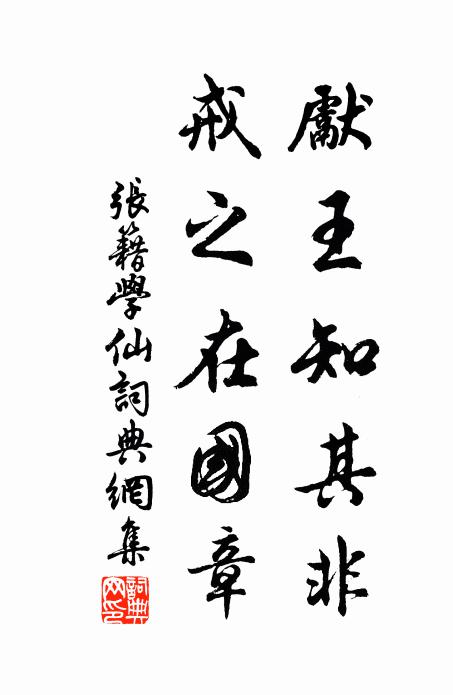 獻王知其非
戒之在國章
張籍學仙詞典網集
詞典網印